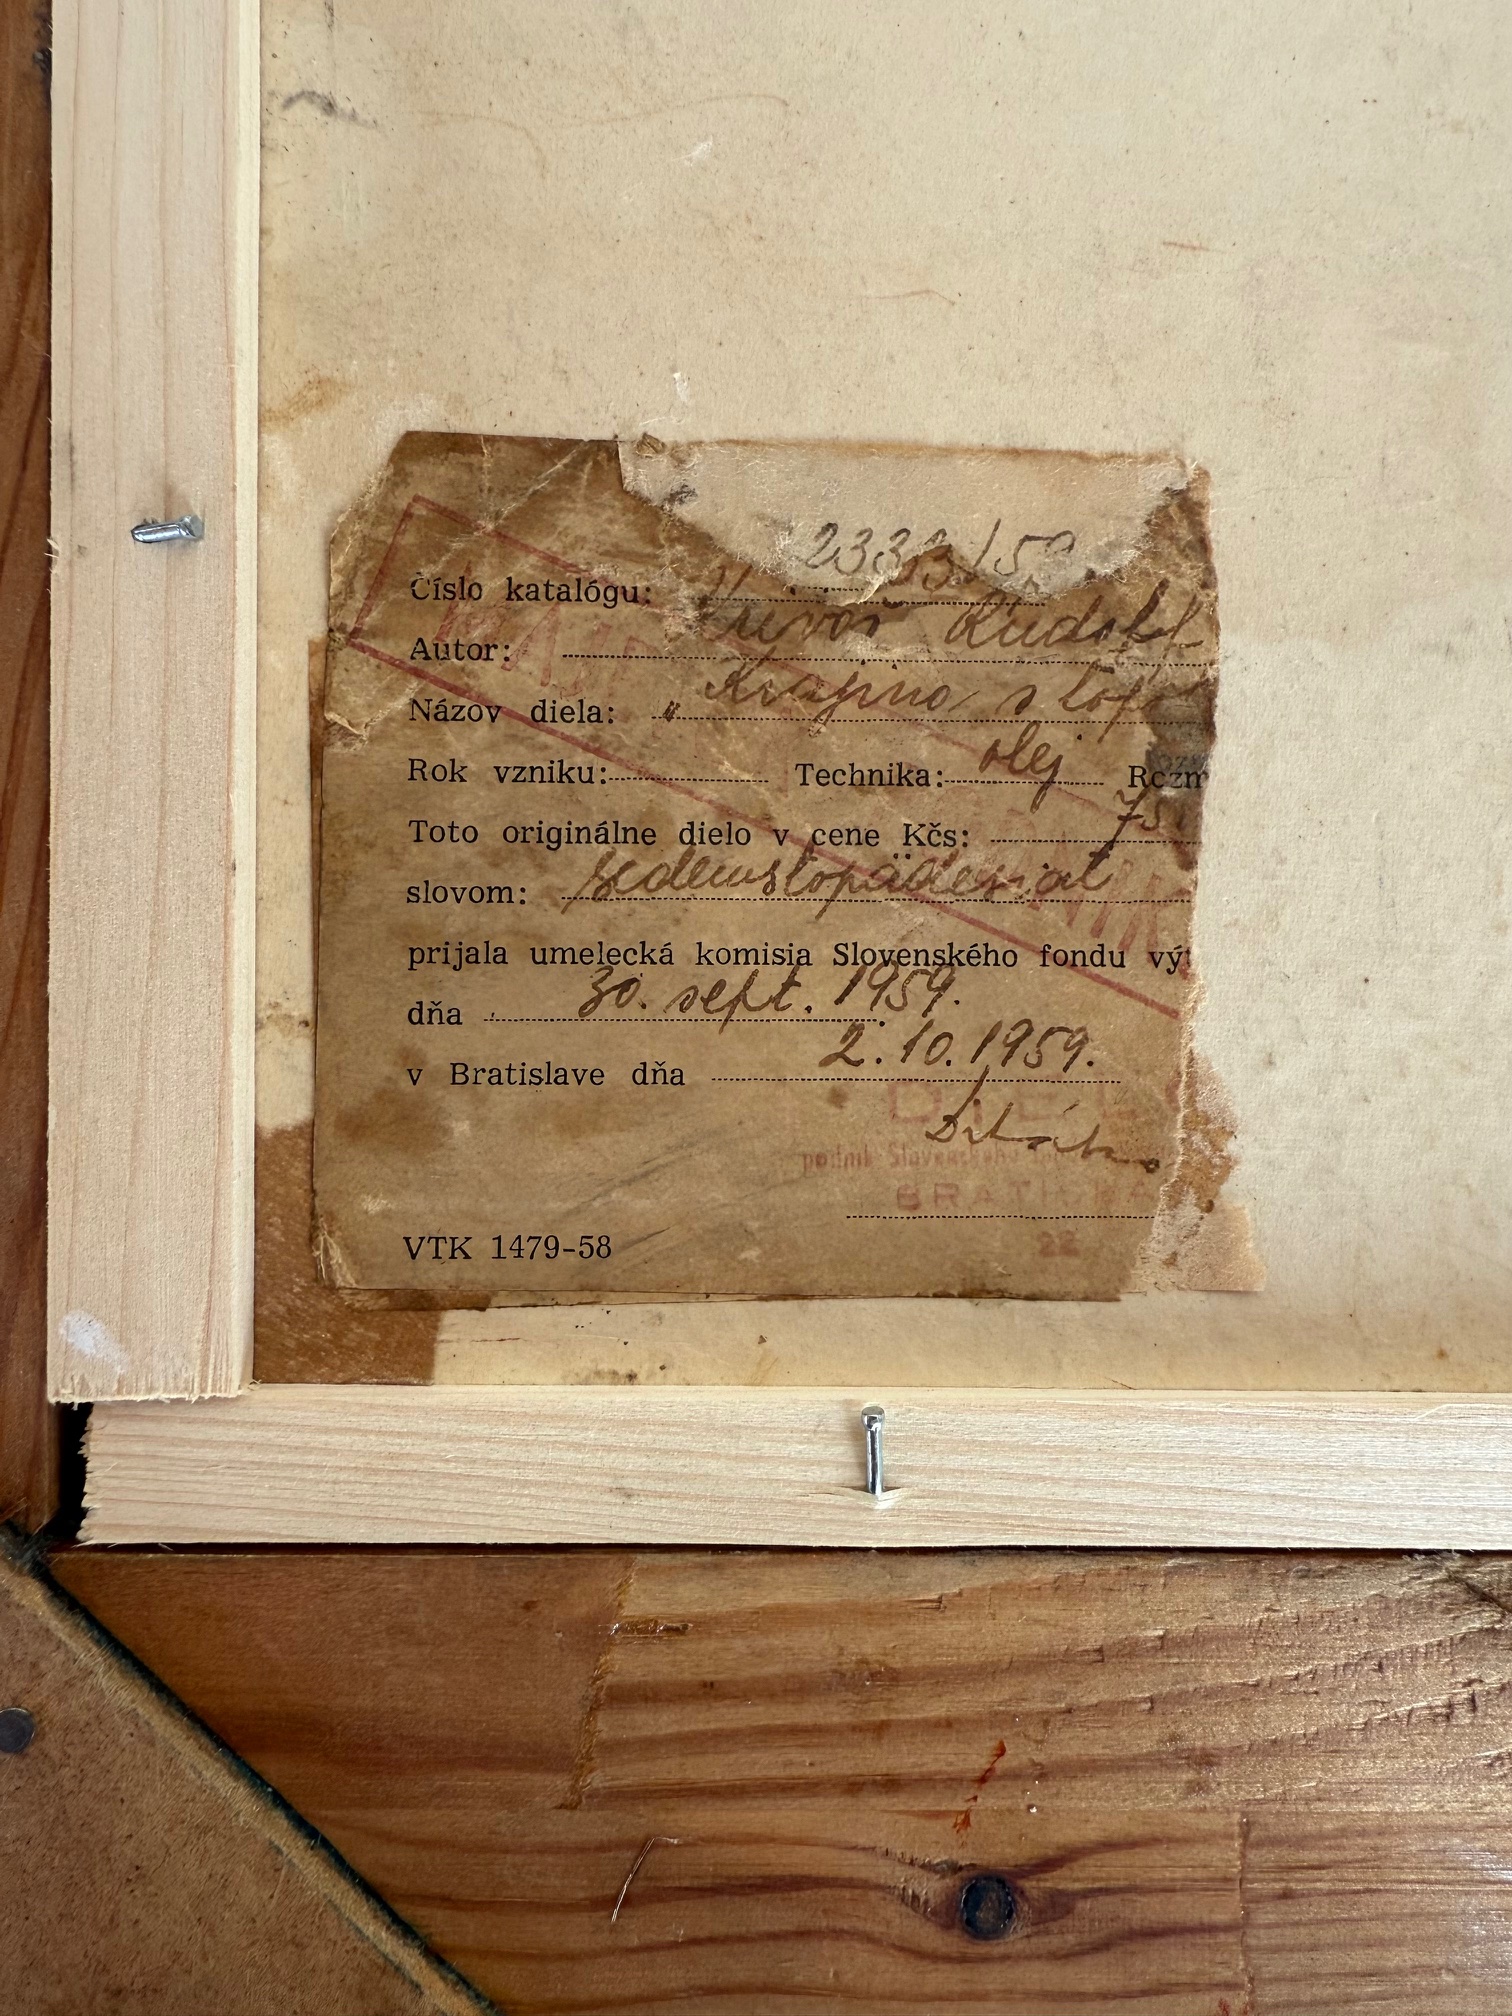 2333/59
Číslo katalógu:
Autor: Krivoš Rudolf
Názov diela: „ Krajina s
Rok vzniku: Technika: olej Rozm
Toto originálne dielo v cene Kčs: 75
slovom: sedemstopädesiat
prijala umelecká komisia Slovenského fondu výt
dňa 30. sept. 1959.
v Bratislave dňa 2.10.1959.
podnik Slovenského
BRATISLA
22
VTK 1479-58